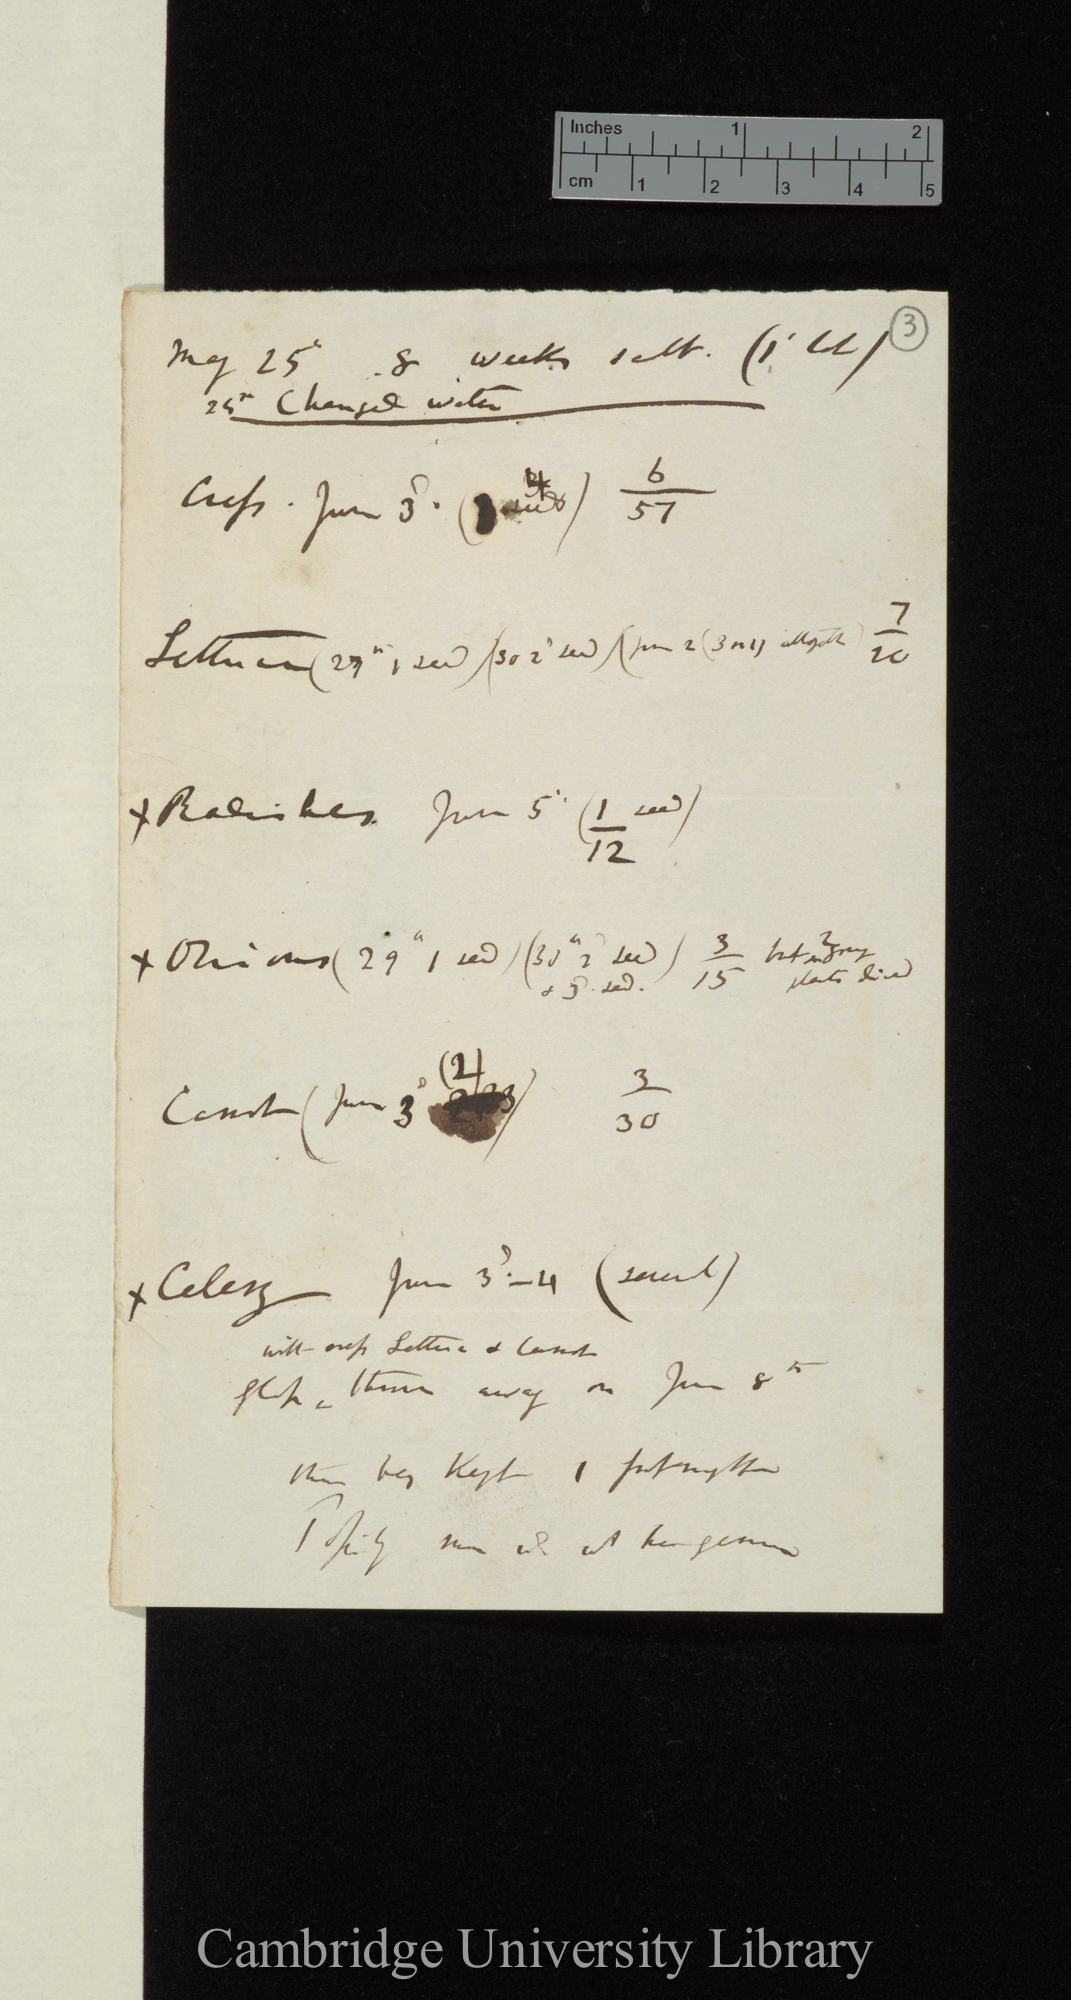 Inches 1 2
cm 1 2 3 4 5
3
May 25th 8 weeks salt. (1st lot)
25th Changed water
Cress. June 3d. (4 seeds) 6/57
Lettuce (29th 1 seed) (30 2d seed) (June 2 (3 or 4) altogether) 7/20
x Radishes June 5th (1/12 seed)
x Onions (29th 1 seed) (30th 2d seed) 3/15 but 2 young
& 3d seed. plants died
Carrot (June 3d (2)) 3/30
x Celery June 3d.-4 (several)
with cress Lettuce & Carrot
glass thrown away on June 8th
then being kept 1 fortnight